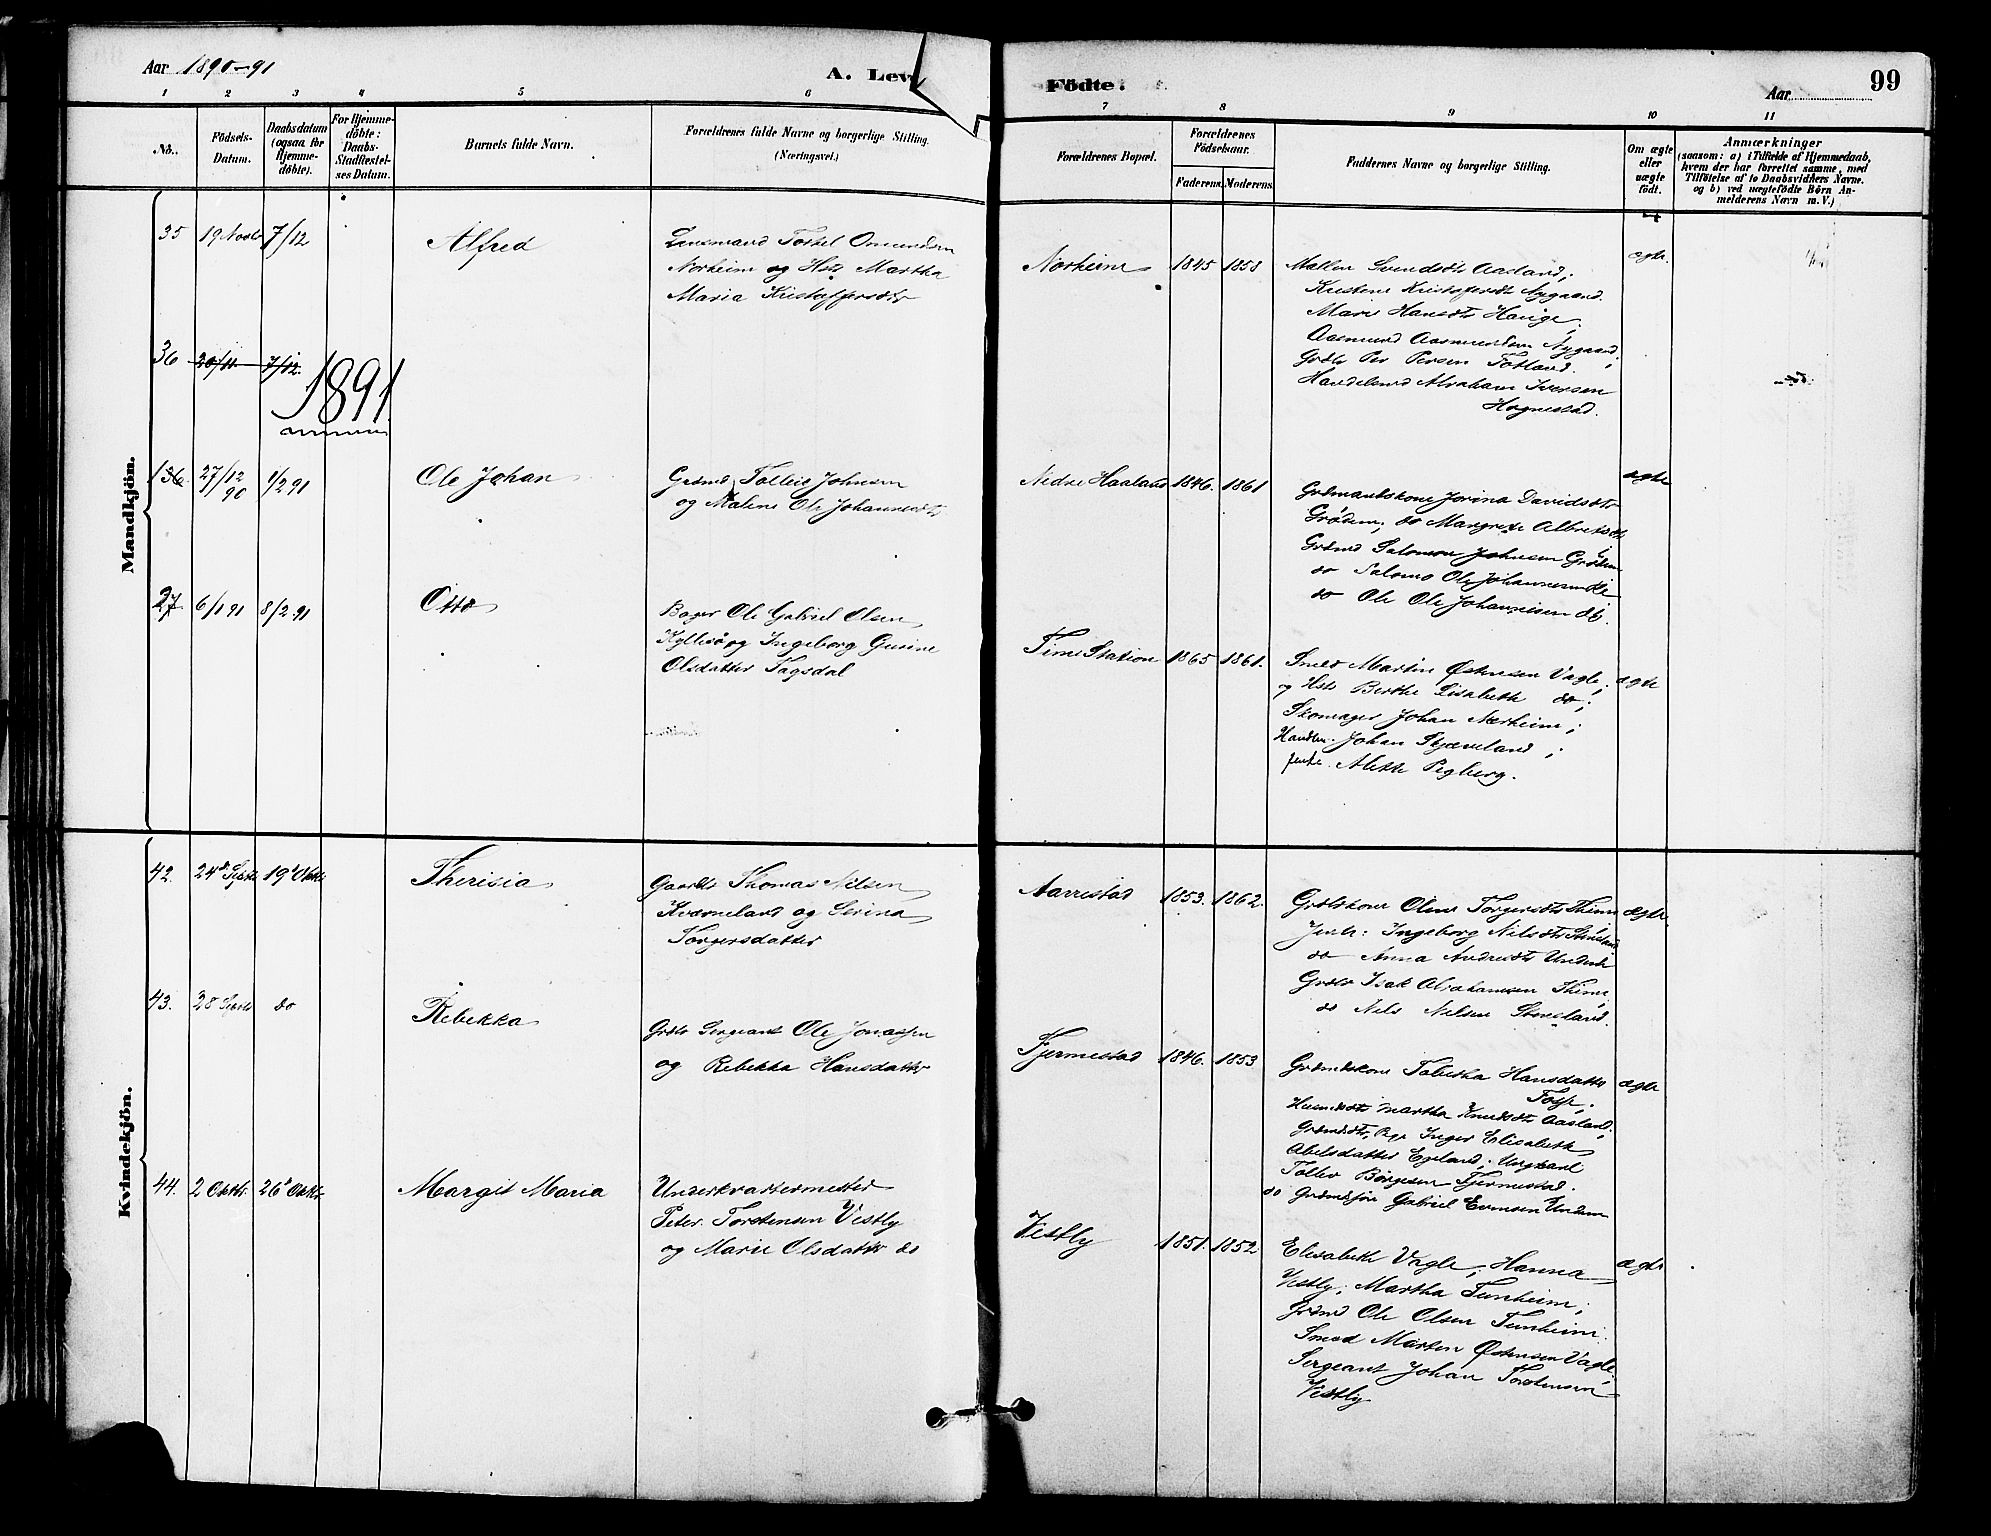 Aar 1890-91
A. Lev
Födte.
Aar
99
1 2 3 4 5 6 7 8 9 10 11
No.
Födsels-Datum.
Daabsdatum (ogsaa for Hjemmedöbte).
For Hjemmedöbte: Daabs-Stadfæstelses Datum.
Barnets fulde Navn.
Forældrenes fulde Navne og borgerlige Stilling.
(Næringsvei.)
Forældrenes Bopæl.
Forældrenes Födselsaar.
Faderens. Moderens.
Faddernes Navne og borgerlige Stilling.
Om ægte eller uægte födt.
Anmærkninger
(saasom: a) i Tilfælde af Hjemmedaab,
hvem der har forrettet samme, med
Tilföielse af to Daabsvidners Navne.
og b) ved uægtefödte Börn An-
melderens Navn m. V.)
Mandkjön.
35 19 Novb 7/12 Alfred
Lensmand Tostel Omundsen
Norheim og Hst Martha
Maria Kristoffersdtr
Norheim 1845 1858
Malene Svendsdtr Aasland;
Kristine Kristofersdt Nygaard.
Marie Hansdtr Hauge;
Aasmund Aasmundsen Nygaard;
Grdbr Per Persen Fotland.
Handelsmd Abraham Iversen
Hognestad.
ægte.
36 20/11 7/12.
1891
136 27/12 90 1/2 91 Ole Johan
Grdmd Tolleiv Johnsen
og Malene Ole Johannesdtr
Nedre Haaland 1846. 1861
Grdmandskone Jorina Davidsdtr
Grödem, do Margrete Albretsdtr
Grdmd Salomon Johnsen Grödem
do Salomo Ole Johannesen
do Ole Ole Johannesen do.
ægte
27 6/1 91 8/2 91 Otto
Bager Ole Gabriel Olsen
Kyllesö og Ingeborg Gurine
Olsdatter Tagsdal
Time Station 1865 1861.
Smed Martin Østensen Vagle;
og Hst Berthe Lisabeth do;
Skomager Johan Nærheim;
Handlm. Johan Skjæveland;
Alette Regberg.
ægte
Kvindekjön.
42. 24d Septb 19d Oktb Therisia
Gaardbr Thomas Nilsen
Kværneland og Serina
Torgersdatter
Aarrestad 1853. 1862.
Grdbrkone Oline Torgersdtr Thime
Ingeborg Nilsdtr
do Anna Andresdtr
Grdbr Isak Abrahamsen Thime
do Nels Nelsen
ægte
43. 28 Septb do Rebekka
Grdbr Sergeant Ole Jonassen
og Rebekka Hansdatter
Fjermestad 1846. 1853
Grdmdskone Tabitha Hansdatter
Fosse;
Martha Knudsdtr Aasland;
Inger Elisabeth
Abelsdatter Egeland; Ungkarl
Tollev Börgesen Fjermestad.
do Gabriel
ægte
44. 2 Oktbr. 26d Oktbr Margit Maria
Underkvartermester
Peter Torstensen Vestly
og Marie Olsdatter do
Vestly 1851. 1852
Elisabeth Vagle; Hanna
Vestly; Martha Tunheim;
Grdmd Ole Olsen Tunheim;
Smed Martin Østensen Vagle;
Sergeant Johan Torstensen
Vestly
ægte